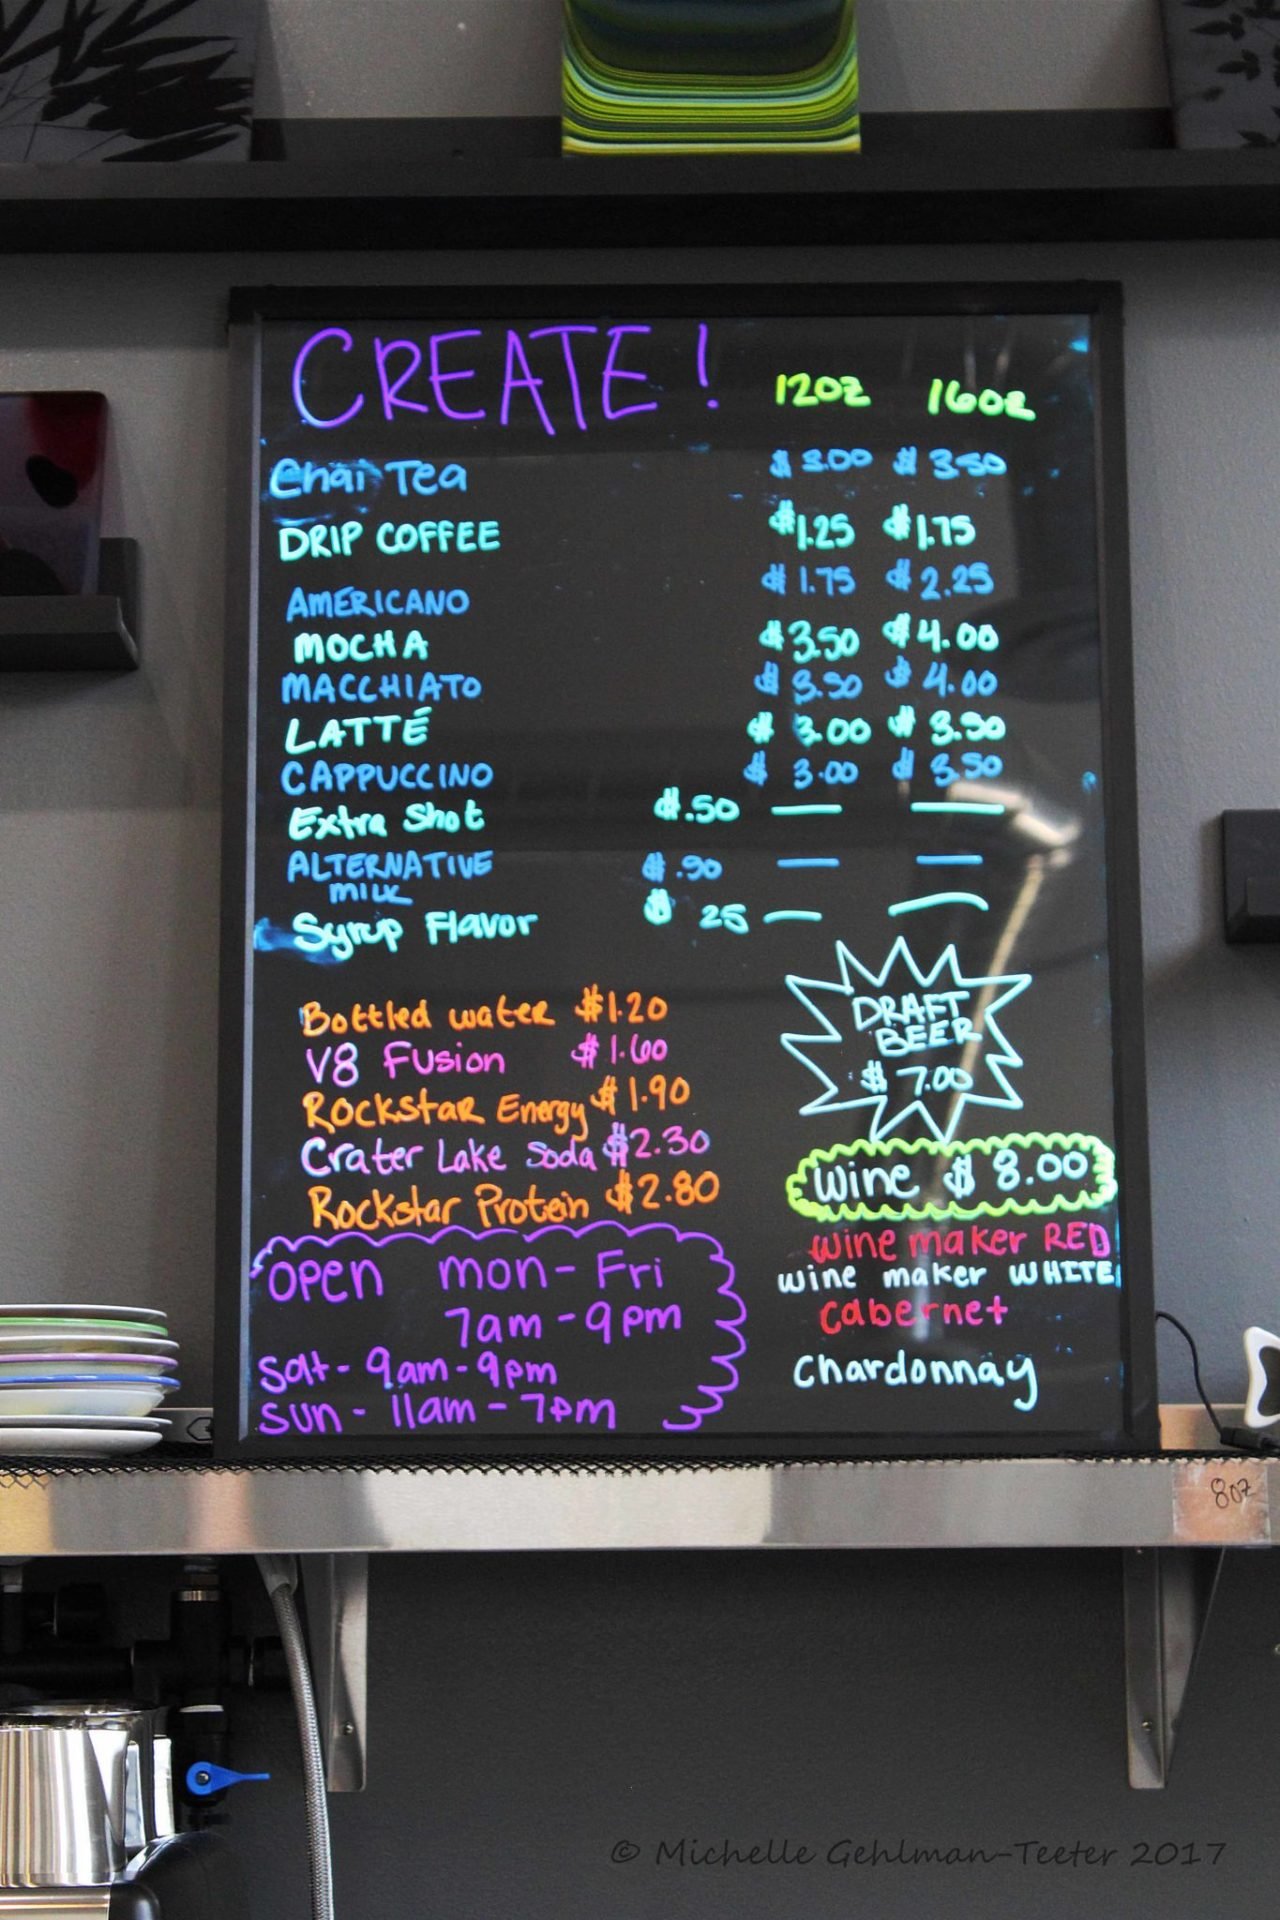 CREATE! 12OZ 16OZ
Chai Tea $3.00 $3.50
DRIP COFFEE $1.25 $1.75
AMERICANO $1.75 $2.25
MOCHA $3.50 $4.00
MACCHIATO $3.50 $4.00
LATTÉ $3.00 $3.50
CAPPUCCINO $3.00 $3.50
Extra Shot $.50 — —
ALTERNATIVE $.90 — —
MILK
Syrup Flavor $ 25 — —
Bottled water $1.20
V8 Fusion $1.60
Rockstar Energy $1.90
Crater Lake Soda $2.30
Rockstar Protein $2.80
DRAFT
BEER
$7.00
Wine $8.00
wine maker RED
wine maker WHITE
Cabernet
Chardonnay
open mon-Fri
7am-9pm
sat-9am-9pm
sun-11am-7pm
8oz
© Michelle Gehlman-Teeter 2017